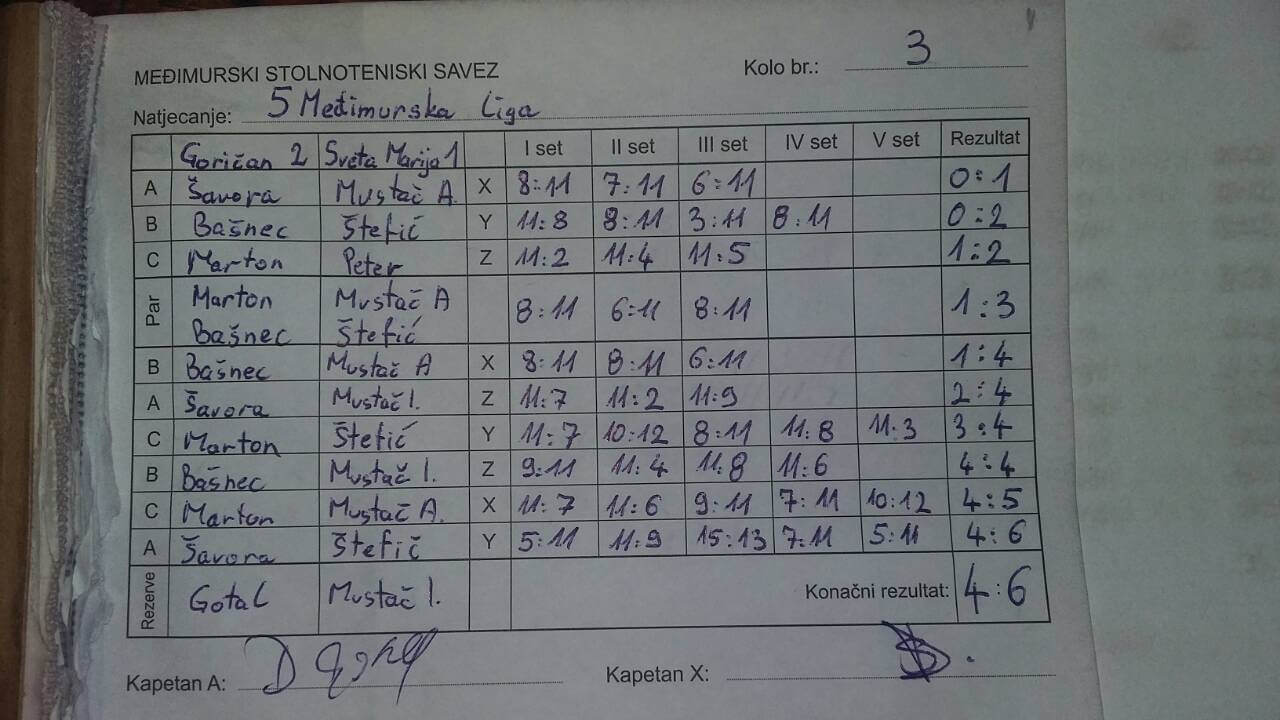 MEĐIMURSKI STOLNOTENISKI SAVEZ Kolo br.: 3
Natjecanje: 5 Međimurska Liga
Goričan 2 Sveta Marija 1 I set II set III set IV set V set Rezultat
A Šavora Mustač A. X 8:11 7:11 6:11 0:1
B Bašnec Štefić Y 11:8 8:11 3:11 8:11 0:2
C Marton Peter Z 11:2 11:4 11:5 1:2
Par Marton Mustač A 8:11 6:11 8:11 1:3
Bašnec Štefić
B Bašnec Mustač A X 8:11 8:11 6:11 1:4
A Šavora Mustač I. Z 11:7 11:2 11:9 2:4
C Marton Štefić Y 11:7 10:12 8:11 11:8 11:3 3:4
B Bašnec Mustač I. Z 9:11 11:4 11:8 11:6 4:4
C Marton Mustač A. X 11:7 11:6 9:11 7:11 10:12 4:5
A Šavora Štefič Y 5:11 11:9 15:13 7:11 5:11 4:6
Rezerve Gotal Mustač I. Konačni rezultat: 4:6
Kapetan A: Kapetan X: